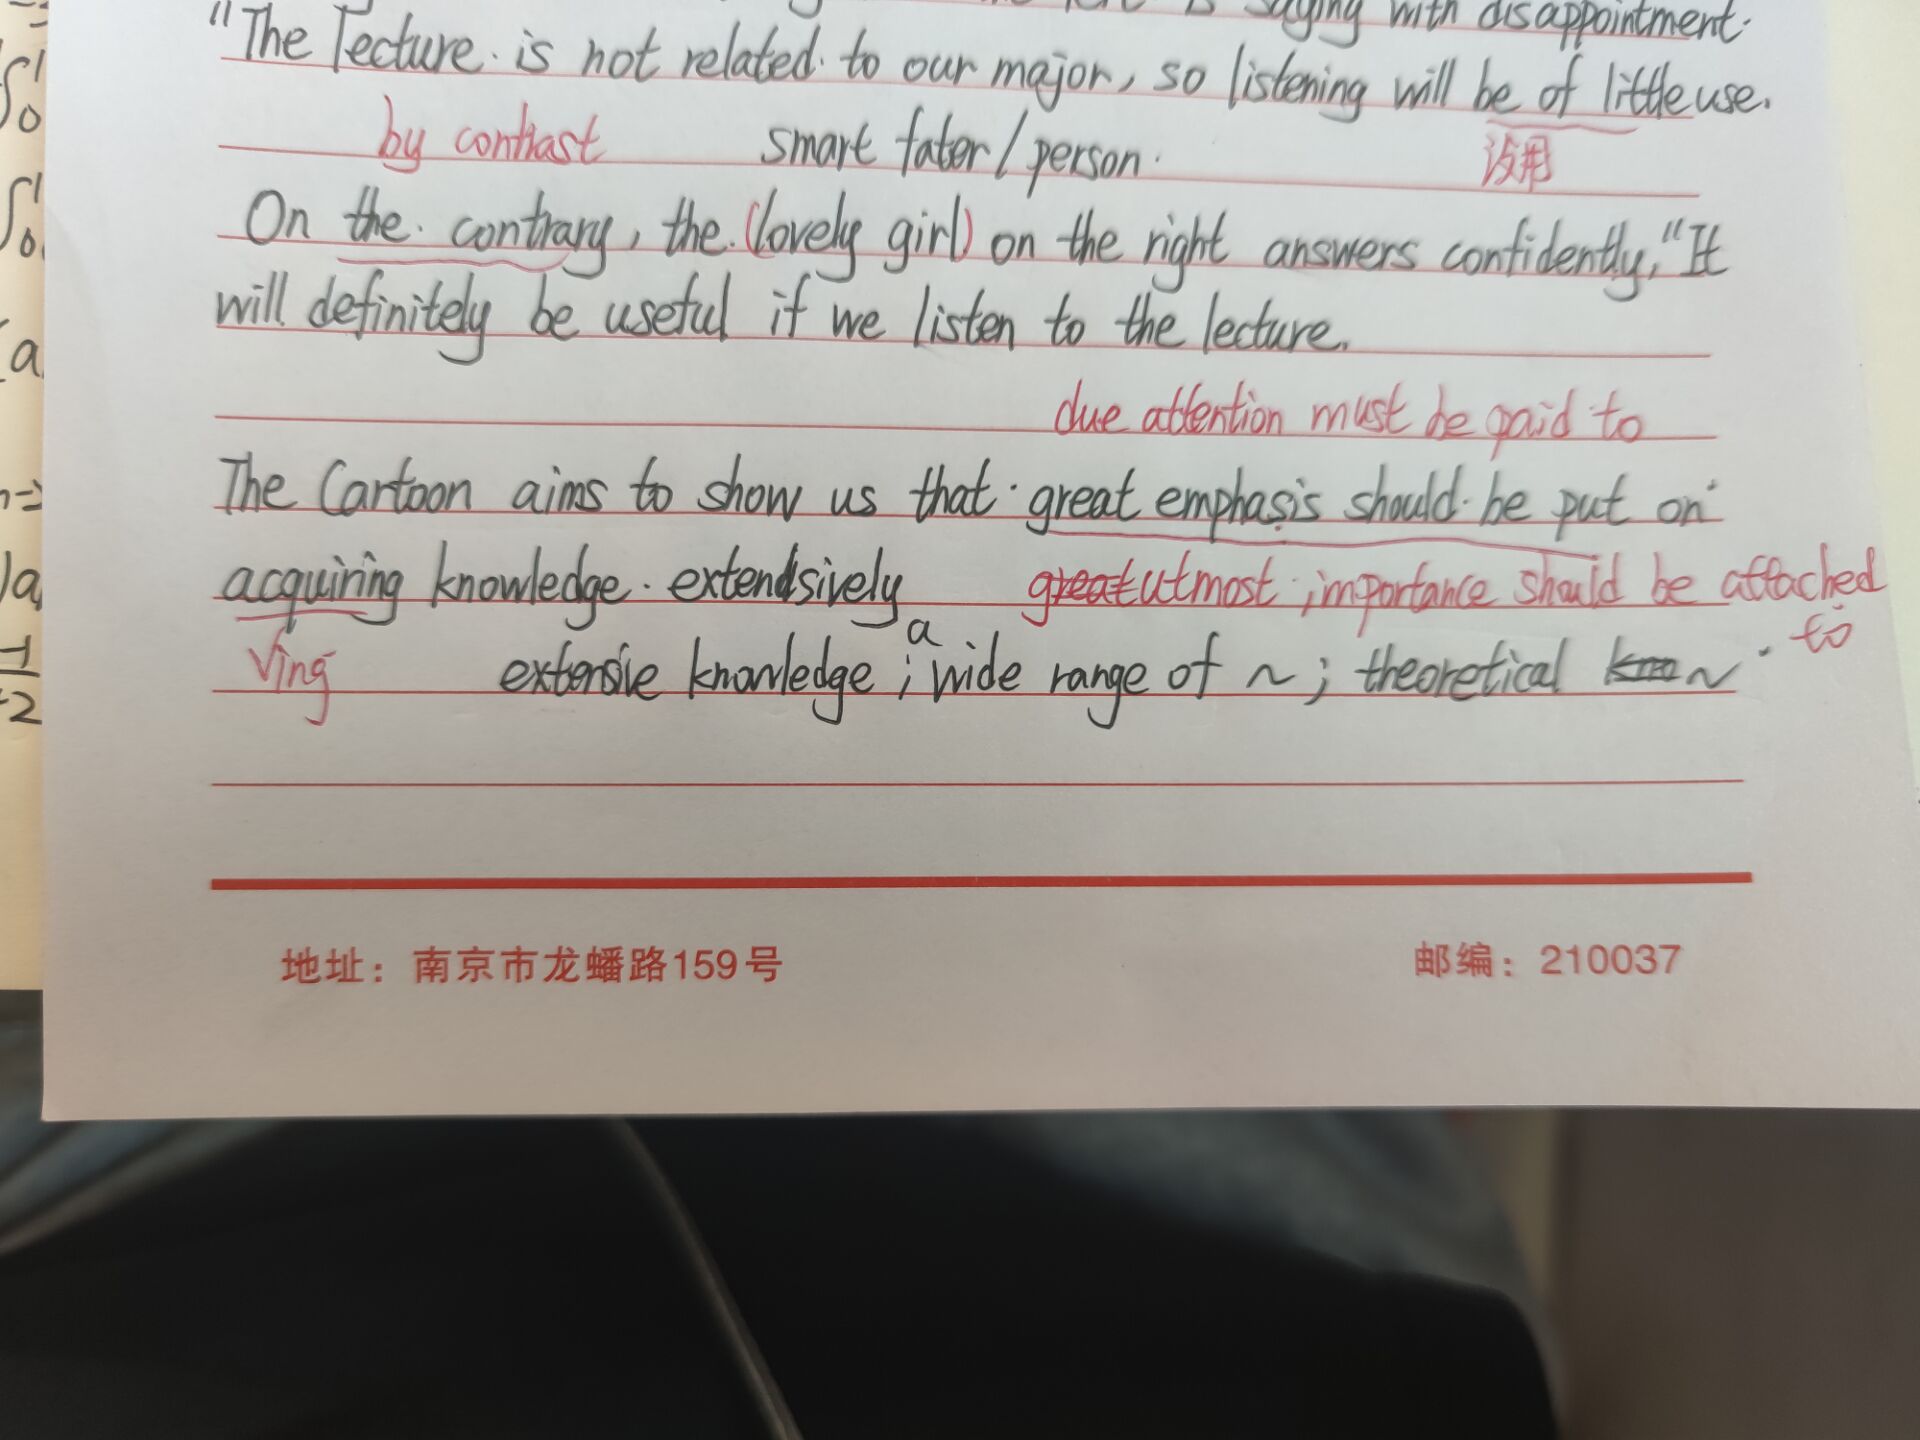 is saying with disappointment.
"The lecture is not related to our major, so listening will be of little use.
by contrast smart fater/person. 没用
On the contrary, the (lovely girl) on the right answers confidently, "It
will definitely be useful if we listen to the lecture.
due attention must be paid to
The Cartoon aims to show us that great emphasis should be put on
acquiring knowledge. extendsively great utmost importance should be attached
to
Ving extensive knowledge; a wide range of ~; theoretical ~
地址：南京市龙蟠路159号 邮编：210037